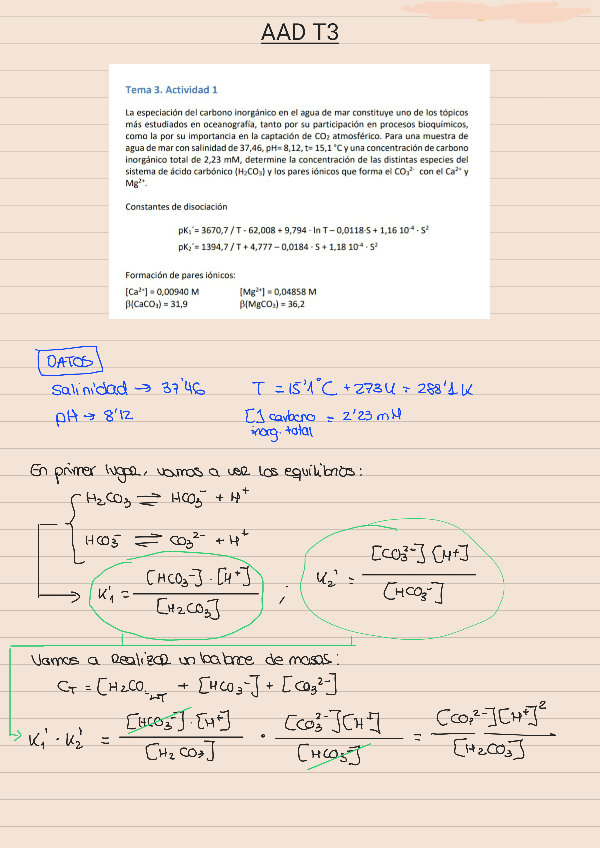 AAD T3
Tema 3. Actividad 1
La especiación del carbono inorgánico en el agua de mar constituye uno de los tópicos
más estudiados en oceanografía, tanto por su participación en procesos bioquímicos,
como la por su importancia en la captación de CO₂ atmosférico. Para una muestra de
agua de mar con salinidad de 37,46, pH= 8,12, t= 15,1 °C y una concentración de carbono
inorgánico total de 2,23 mM, determine la concentración de las distintas especies del
sistema de ácido carbónico (H₂CO₃) y los pares iónicos que forma el CO₃²⁻ con el Ca²⁺ y
Mg²⁺.
Constantes de disociación
pK₁´= 3670,7 / T - 62,008 + 9,794 · ln T – 0,0118·S + 1,16 10⁻⁴ · S²
pK₂´= 1394,7 / T + 4,777 – 0,0184 · S + 1,18 10⁻⁴ · S²
Formación de pares iónicos:
[Ca²⁺] = 0,00940 M [Mg²⁺] = 0,04858 M
β(CaCO₃) = 31,9 β(MgCO₃) = 36,2
DATOS
Salinidad → 37'46 T = 15'1°C + 273K = 288'1 K
pH → 8'12 [ ] carbono inorg. total = 2'23 mM
En primer lugar, vamos a ver los equilibrios:
H₂CO₃ ⇌ HCO₃⁻ + H⁺
HCO₃⁻ ⇌ CO₃²⁻ + H⁺
K₁' = [HCO₃⁻]·[H⁺] / [H₂CO₃] ; K₂' = [CO₃²⁻][H⁺] / [HCO₃⁻]
Vamos a realizar un balance de masas:
C_T = [H₂CO₃] + [HCO₃⁻] + [CO₃²⁻]
K₁' · K₂' = [HCO₃⁻]·[H⁺] / [H₂CO₃] · [CO₃²⁻][H⁺] / [HCO₃⁻] = [CO₃²⁻][H⁺]² / [H₂CO₃]